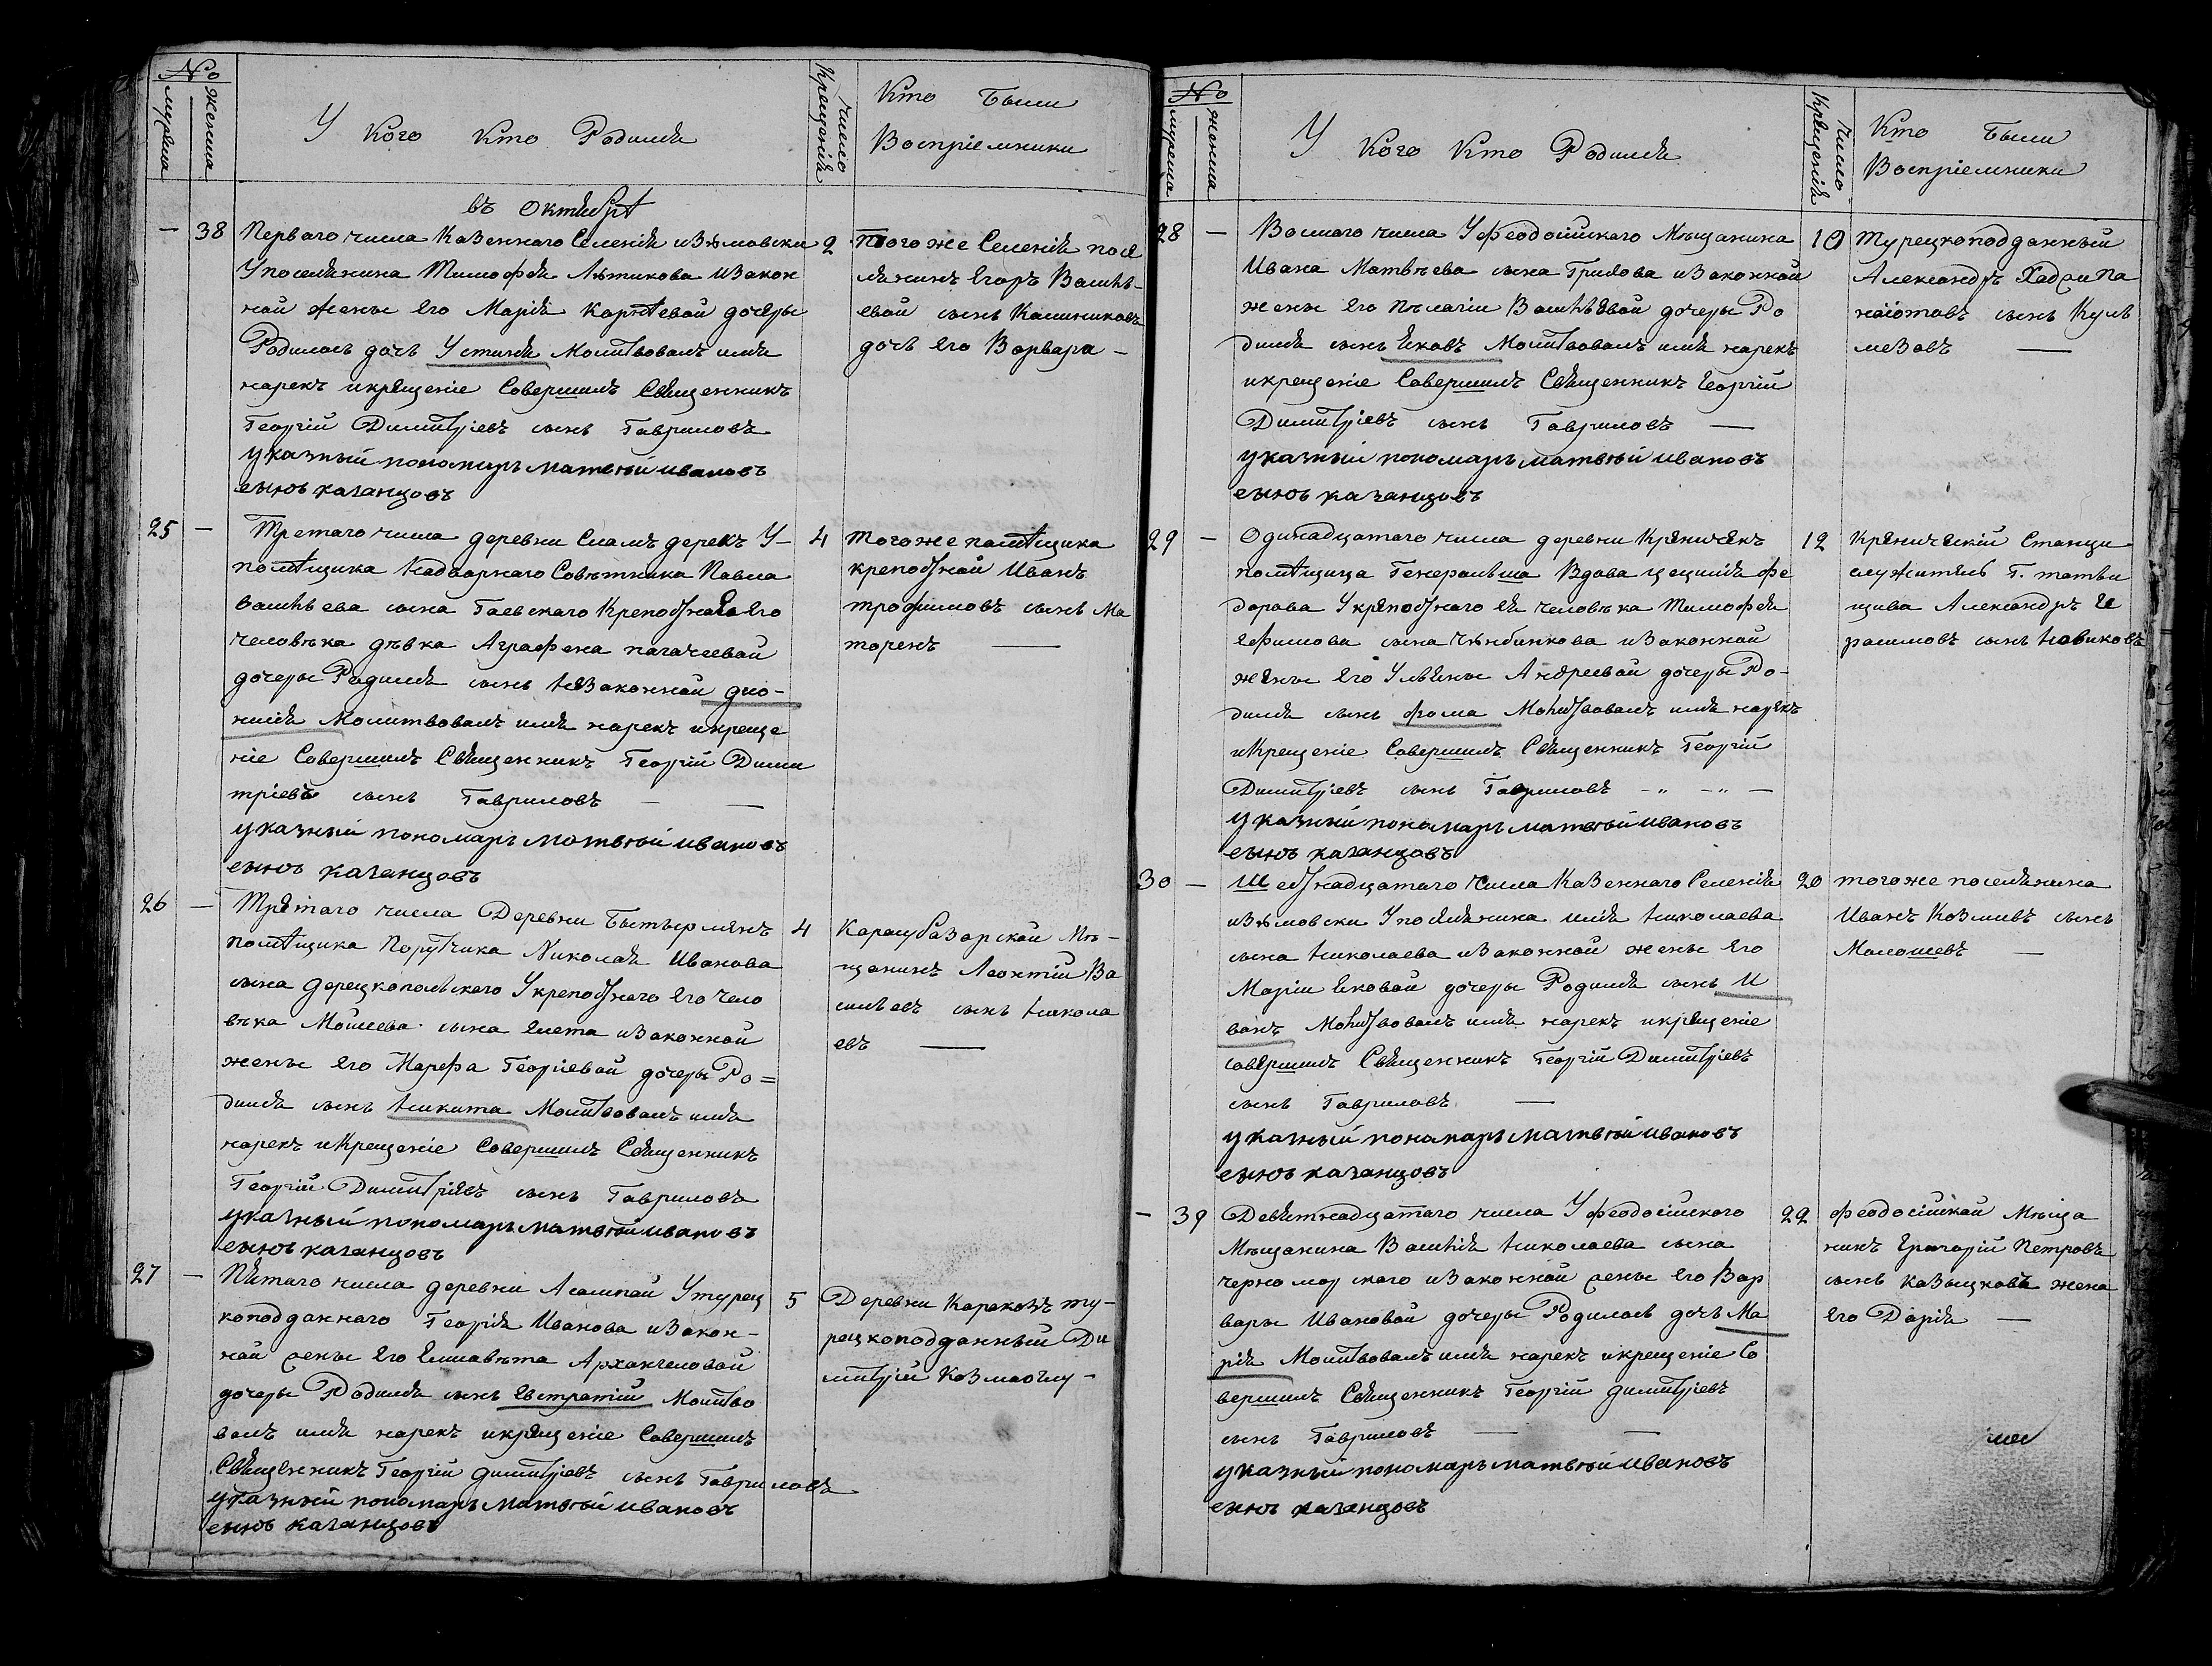 No
мужеска
женска
У кого кто Родился
число крещения
Кто Были
Восприемники
въ Октябрѣ
38
Перваго числа Казеннаго Селенія изюмовски
У поселянина Тимофея Лѣтикова изакон
ной жены его Марія Карнѣевой дочеры
Родилась дочь Устинія Молитвовалъ имя
нарекъ икрещеніе Совершилъ Священникъ
Георгій Димитріевъ сынъ Гавриловъ
указный пономарь матвѣй ивановъ
сынъ казанцовъ
2
Того же Селенія посе
лянинъ Егоръ Василь-
евой сынъ Калиниковъ
дочь его Варвара -
25
Третаго числа деревни Сиамъ дерекъ У-
помѣщика Надворнаго Совѣтника Павла
Васильева сына Гаевскаго Крепостнаго Его
человѣка дѣвка Аграфена пагачеевай
дочеры Родился сынъ Незаконной дио-
нисія Молитвовалъ имя нарекъ икреще
ніе Совершилъ Священникъ Георгій Дими
тріевъ сынъ Гавриловъ
указный пономарь матвѣй ивановъ
сынъ казанцовъ
4
того же памѣщика
крепостной Иванъ
трофимовъ сынъ Ма
торенъ
26
Третаго числа Деревни
помѣщика Порутчика Николая Иванова
сына дерецкопольскаго Укрепостнаго Его чело
вѣка Моисеева сына Елета изаконной
жены Его Марфа Георгіевой дочеры Ро=
дился сынъ Никита Молитвовалъ имя
нарекъ икрещеніе Совершилъ Священникъ
Георгій Димитріевъ сынъ Гавриловъ
указный пономарь матвѣй ивановъ
сынъ казанцовъ
4
Карасубазарской Мѣ-
щанинъ Леонтій Ва
сильевъ сынъ Никола
евъ
27
Пятаго числа деревни Асампай Утурец
коподданнаго Георгія Иванова изакон-
ной жены Его Елисавѣта Архангеловой
дочеры Родился сынъ Евстратій Молитво
валъ имя нарекъ икрещеніе Совершилъ
Священникъ Георгій димитріевъ сынъ Гавриловъ
указный пономарь матвѣй ивановъ
сынъ казанцовъ
5
Деревни Каракозъ ту-
рецкоподданный Ди
митрій Козмаоглу-
No
мужеска
женска
У кого Кто Родился
число крещения
Кто Были
Восприемники
28
Восмаго числа У феодосійскаго Мѣщанина
Ивана Матвѣева сына Грикова изаконной
жены его Пелагіи Васильевой дочеры Ро
дился сынъ Яковъ Молитвовалъ имя нарекъ
икрещеніе Совершилъ Священникъ Георгій
Димитріевъ сынъ Гавриловъ
указный пономарь матвѣй ивановъ
сынъ казанцовъ
10
турецкоподданный
Александръ Хаджи Па
наіотовъ сынъ Куль
мезовъ
29
Одинадцатаго числа деревни Креничекъ
помѣщица Генеральша Вдова цецилія Фе
дорова Укрепостнаго ея человѣка Тимофея
Ефимова сына Чембинкова изаконной
жены Его Ульяны Андреевой дочеры Ро-
дился сынъ фома Молитвовалъ имя нарекъ
икрещеніе Совершилъ Священникъ Георгій
Димитріевъ сынъ Гавриловъ
указный пономарь матвѣй ивановъ
сынъ казанцовъ
12
Креническій Станци
служитель Г. тати
щива Александръ Ге
расимовъ сынъ Новиковъ
30
Шестнадцатаго числа Казеннаго Селенія
изюмовски У поселянина илія Николаева
сына Николаева изаконной жены Его
Маріи Яковой дочеры Родился сынъ И
ванъ Молитвовалъ имя нарекъ икрещеніе
совершилъ Священникъ Георгій Димитріевъ
сынъ Гавриловъ
указный понамарь матвѣй ивановъ
сынъ казанцовъ
20
того же поселянина
Иванъ Козмивъ сынъ
Малошевъ
39
Девятнадцатаго числа У феодосійскаго
Мѣщанина Василія Николаева сына
черноморскаго изаконной жены Его Вар
вары Ивановой дочеры Родилась дочь Ма
рія Молитвовалъ имя нарекъ икрещеніе Со
вершилъ Священникъ Георгій димитріевъ
сынъ Гавриловъ
указный пономарь матвѣй ивановъ
сынъ казанцовъ
22
феодосійскай Мѣща
нинъ Григорій Петровъ
сынъ Казыцковъ жена
Его Дарія